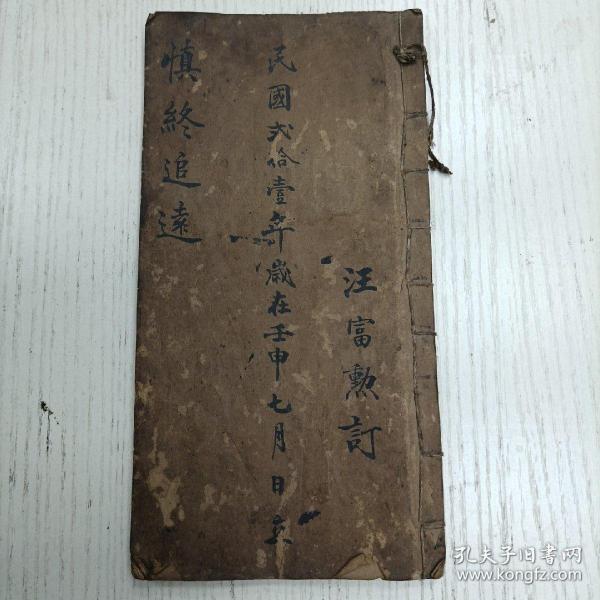 汪富勲訂
民國弍拾壹年歲在壬申七月日立
慎終追遠
孔夫子旧书网
www.kongfz.com